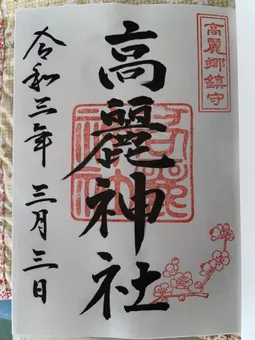 高麗郷鎮守
高麗神社
令和三年三月三日